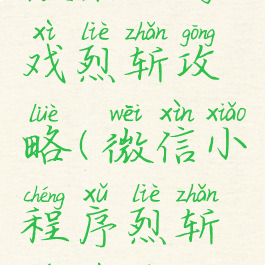 xì liè zhǎn gōng
戏烈斩攻
lüè wēi xìn xiǎo
略(微信小
chéng xǔ liè zhǎn
程序烈斩